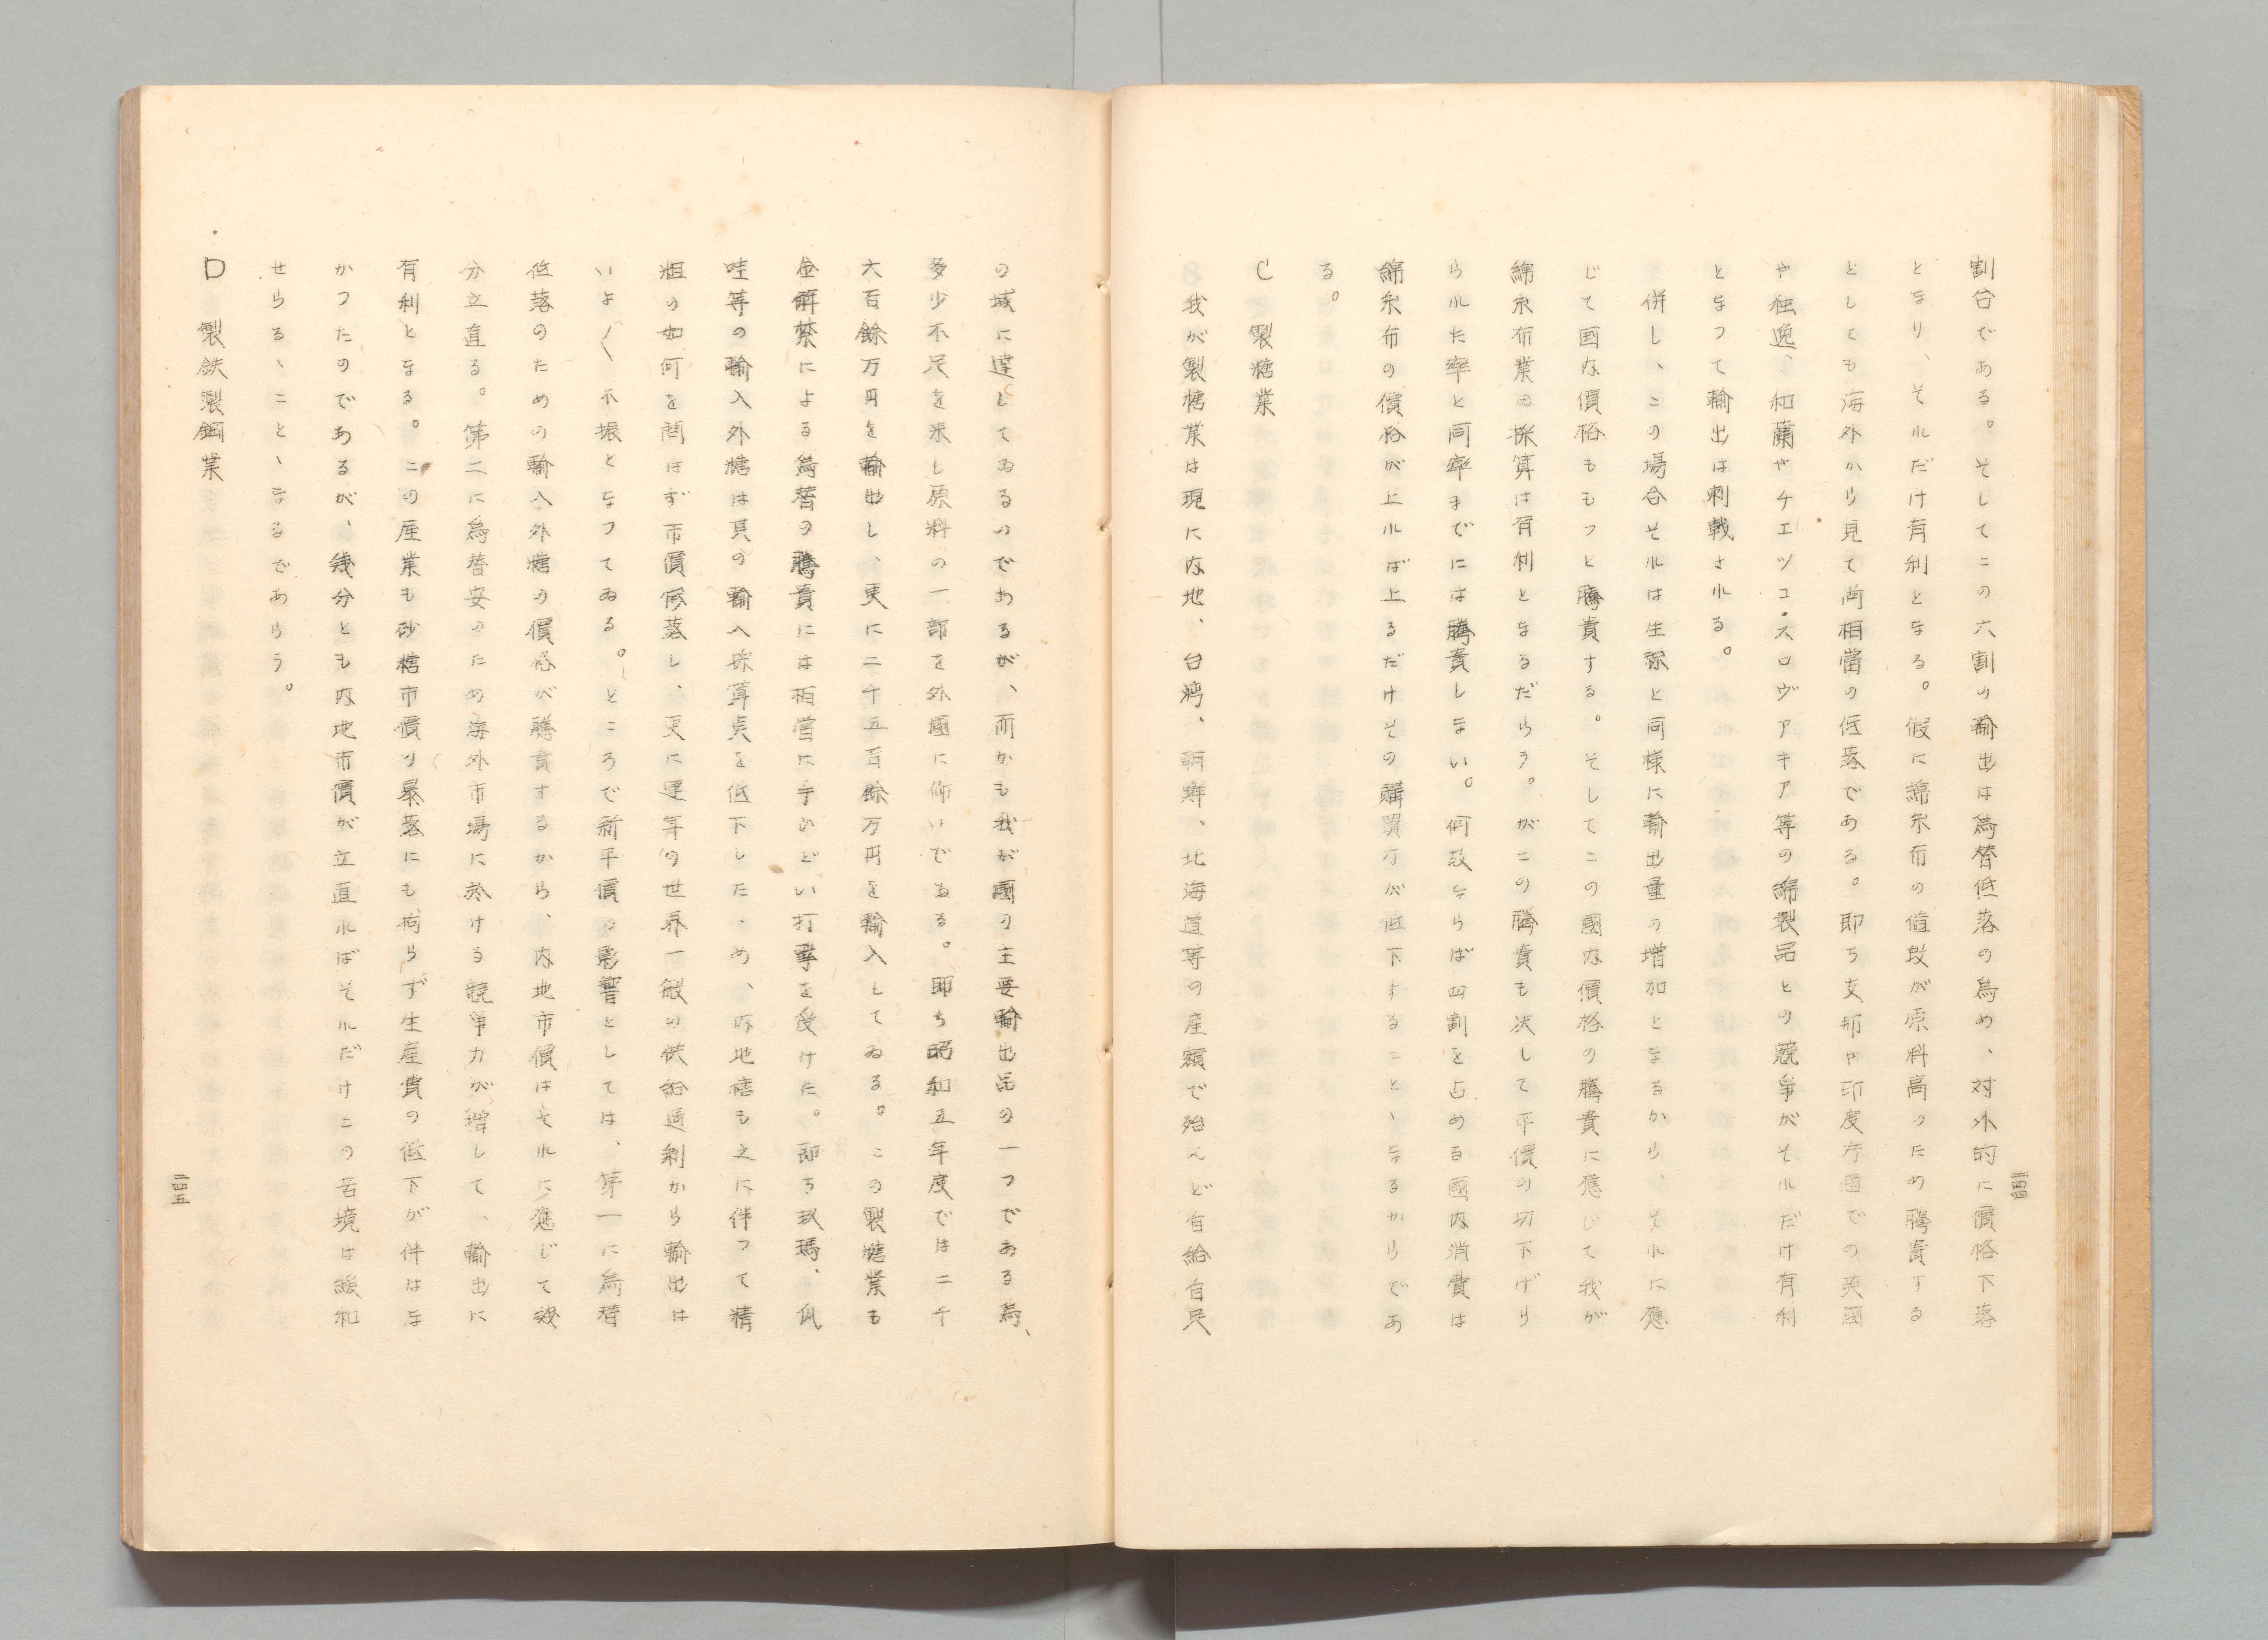 割合である。そしてこの六割の輸出は為替低落の為め、対外的に價格下落
となり、それだけ有利となる。假に綿糸布の値段が原料高のため騰貴する
としても海外から見て尚相當の低落である。即ち支那や印度方面での英國
や独逸、和蘭やチエツコ・スロヴアキア等の綿製品との競争がそれだけ有利
となつて輸出は刺戟される。
併し、この場合それは生糸と同様に輸出量の増加となるから、それに應
じて国内價格ももつと騰貴する。そしてこの國内價格の騰貴に應じて我が
綿糸布業の採算は有利となるだらう。がこの騰貴も决して平價の切下げら
られた率と同率までには騰貴しない。何故ならば四割を占める國内消費は
綿糸布の價格が上れば上るだけその購買力が低下すること、なるからであ
る。
C 製糖業
我が製糖業は現に内地、台湾、朝鮮、北海道等の産額で殆んど自給自足
一四四
の域に達してゐるのであるが、而かも我が國の主要輸出品の一つである為、
多少不足を来し原料の一部を外國に仰いでゐる。即ち昭和五年度では二千
六百餘万円を輸出し、更に二千五百餘万円を輸入してゐる。この製糖業も
金解禁による為替の騰貴には相當に手ひどい打撃を受けた。即ち玖瑪、瓜
哇等の輸入外糖は其の輸入採算点を低下した、め、内地糖も之に伴つて精
粗の如何を問はず市價低落し、更に連年の世界一般の供給過剰から輸出は
いよ〱不振となつてゐる。ところで新平價の影響としては、第一に為替
低落のための輸入外糖の價格が騰貴するから、内地市價はそれに應じて幾
分立直る。第二に為替安のため海外市場に於ける競争力が増して、輸出に
有利となる。この産業も砂糖市價の暴落にも拘らず生産費の低下が伴はな
かつたのであるが、幾分とも内地市價が立直ればそれだけこの苦境は緩和
せらる、こと、なるであらう。
D 製鉄製鋼業
一四五